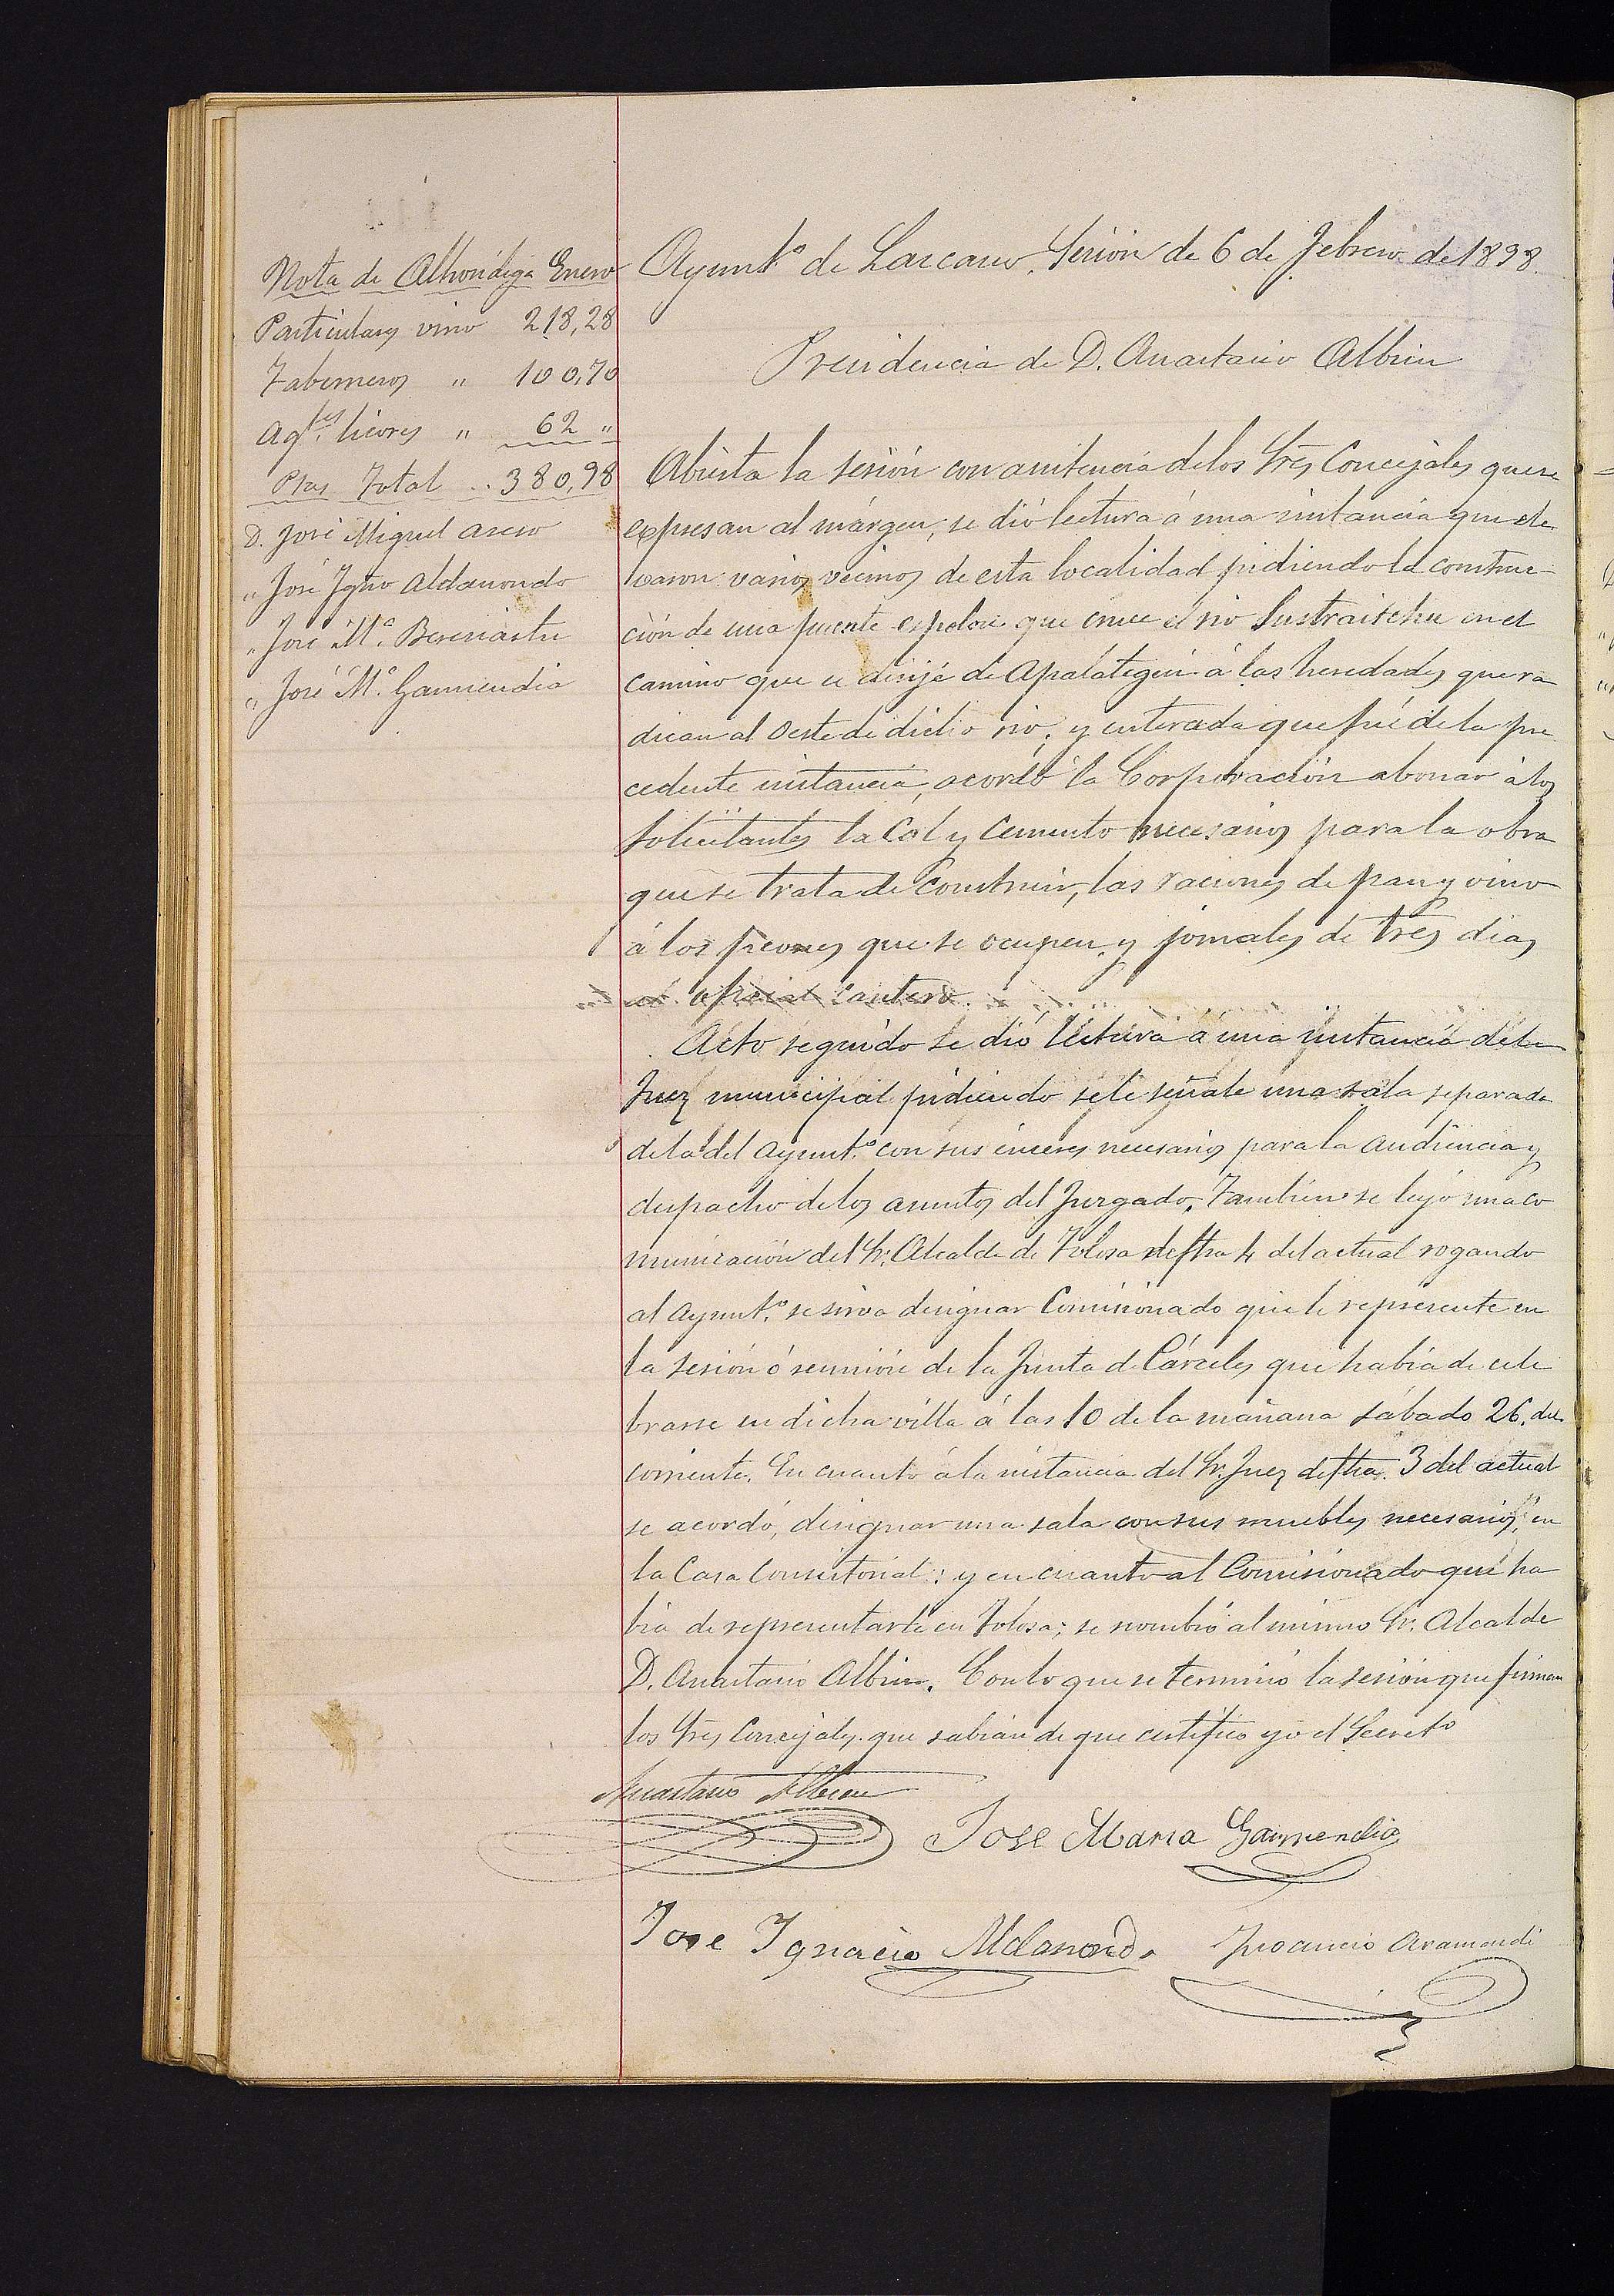 Nota de Alhóndiga Enero
Particulares vino 218,28
Taberneros " 100,70
Agtes licores " 62 "
Ptas Total .. 380,98
D. José Miguel Aseso
" José Igno Aldanondo
" José Mª Bereciartu
" José Mª Garmendia
Ayuntº de Lazcano. Sesión de 6 de Febrero de 1898.
Presidencia de D. Anastasio Albisu
Abierta la sesión con asistencia de los Sres Concejales que se
expresan al márgen, se dió lectura á una instancia que ele
varon varios vecinos de esta localidad pidiendo la construc-
ción de una puente que cruce el rio Sustraitchu en el
camino que se dirije de Apalategui á las heredades que ra
dican al Oeste de dicho rio; y enterada que fué de la pre
cedente instancia, acordó la Corporación abonar á los
solicitantes la Cal y Cemento necesarios para la obra
que se trata de construir, las raciones de pan y vino
á los peones que se ocupen y jornales de tres dias
al oficial cantero.
Acto seguido se dió lectura á una instancia del
Juez municipal pidiendo se le señale una sala separada
de la del Ayuntº con sus enseres necesarios para la audiencia y
despacho de los asuntos del Juzgado. También se leyó una co
municación del Sr. Alcalde de Tolosa fha 4 del actual rogando
al Ayuntº se sirva designar Comisionado que le represente en
la sesión ó reunión de la Junta de Cárceles que había de cele
brarse en dicha villa á las 10 de la mañana sábado 26. del
corriente. En cuanto á la instancia del Sr. Juez de fha. 3 del actual
se acordó, designar una sala con sus muebles necesarios, en
la Casa Consistorial: y en cuanto al Comisionado que ha
bia de representarle en Tolosa; se nombró al mismo Sr. Alcalde
D. Anastasio Albisu. Con lo que se terminó la sesión que firman
los Sres Concejales que sabían de que certifico yo el Secretº
Anastasio Albisu
Jose Maria Garmendia
Jose Ignacio Aldanondo Aramendi